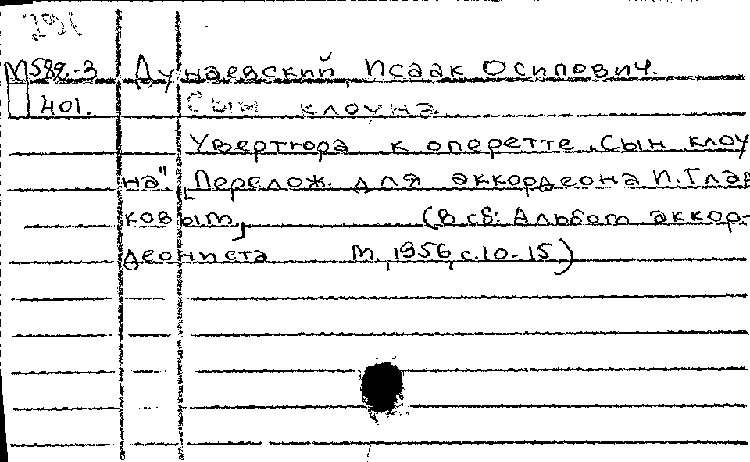 291
М589.-3 Дунаевский, Исаак Осипович.
401. Сын клоуна
Увертюра к оперетте „Сын клоу
на". [Перелож. для аккордеона П. Глав
ковым, (В сб: Альбом аккор-
деониста М, 1956, с. 10-15)